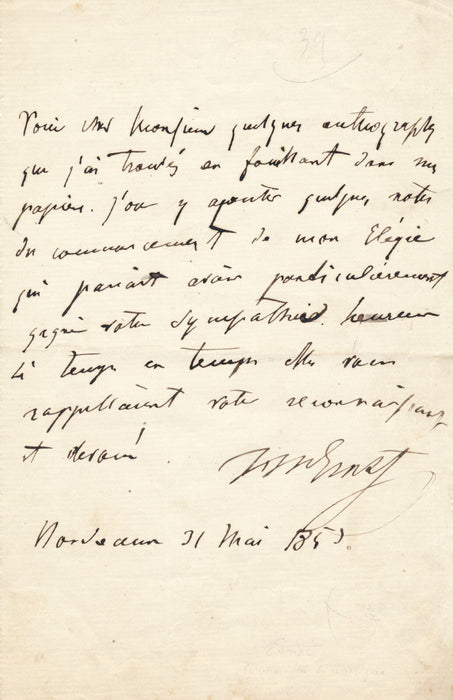 39
Voici cher Monsieur quelques autographes
que j'ai trouvés en fouillant dans mes
papiers. J'ose y ajouter quelques notes
du commencement de mon Elégie
qui parait avoir particulièrement
gagné votre sympathie. heureux
si temps en temps elles vous
rappellaient votre reconnaissant
et dévoué
HWErnst
Bordeaux 31 Mai 1853.